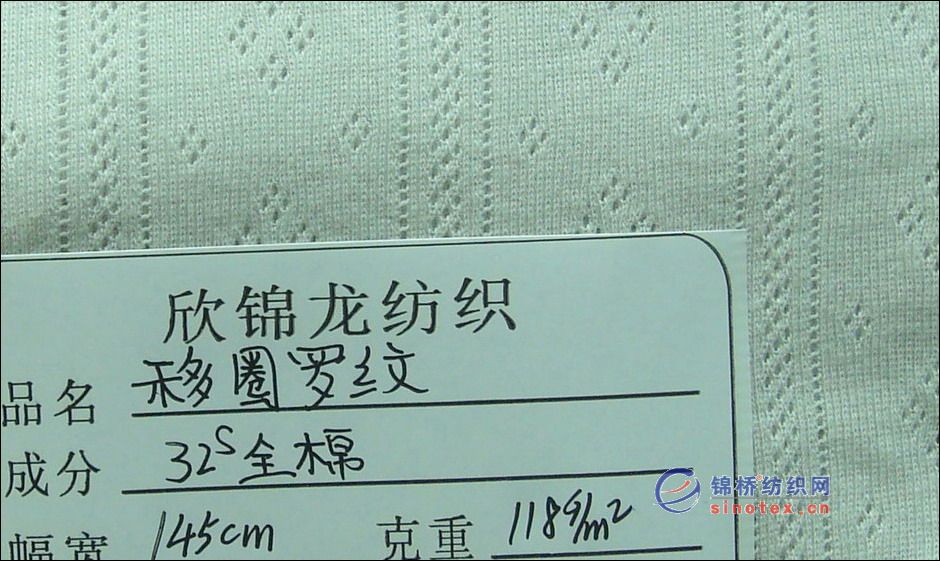 欣锦龙纺织
品名 移圈罗纹
成分 32S全棉
幅宽 145cm 克重 118g/m²
锦桥纺织网
sinotex.cn